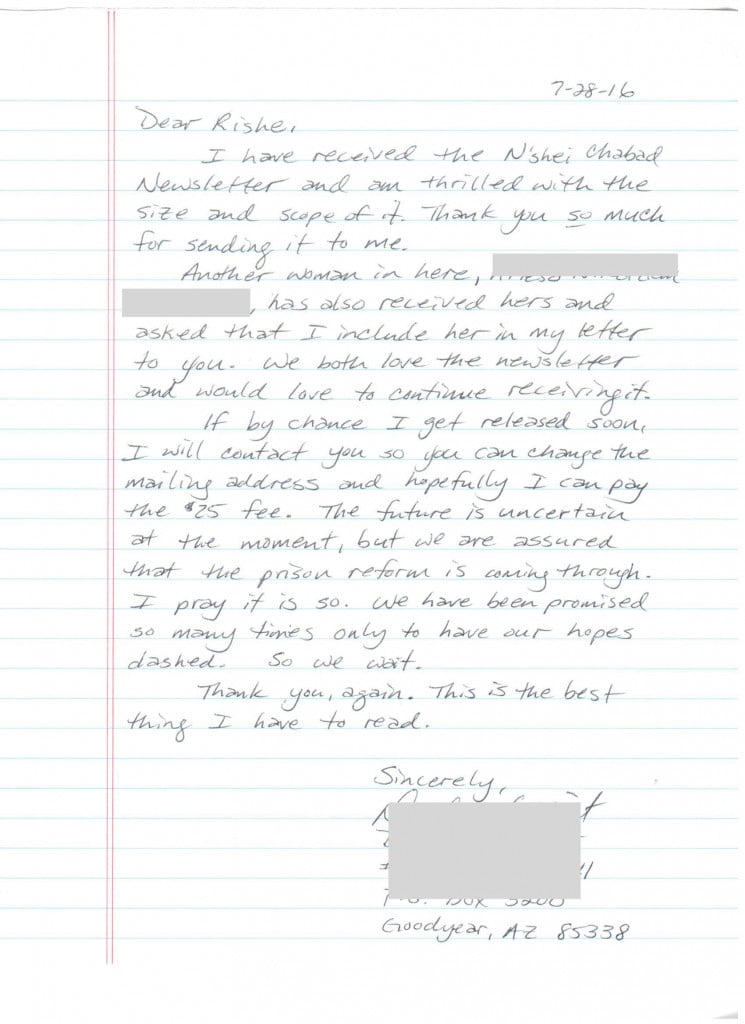 7-28-16
Dear Rishe,
I have received the N'shei Chabad
Newsletter and am thrilled with the
size and scope of it. Thank you so much
for sending it to me.
Another woman in here,
, has also received hers and
asked that I include her in my letter
to you. We both love the newsletter
and would love to continue receiving it.
If by chance I get released soon,
I will contact you so you can change the
mailing address and hopefully I can pay
the $25 fee. The future is uncertain
at the moment, but we are assured
that the prison reform is coming through.
I pray it is so. We have been promised
so many times only to have our hopes
dashed. So we wait.
Thank you, again. This is the best
thing I have to read.
Sincerely,
Goodyear, AZ 85338